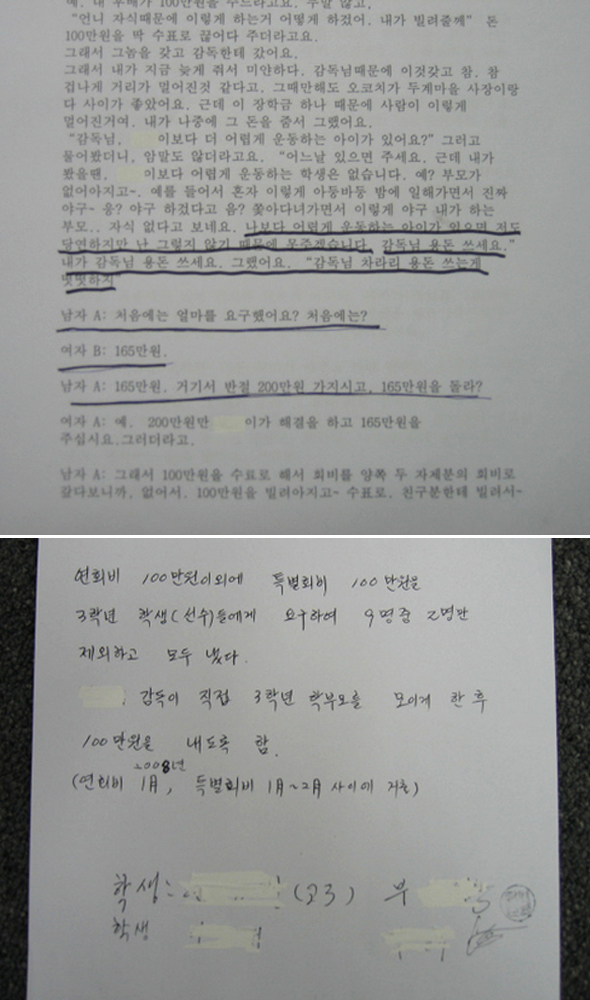 예. 내 후배가 100만원을 주드라고요. 두말 않고,
"언니 자식때문에 이렇게 하는거 어떻게 하겠어. 내가 빌려줄께" 돈
100만원을 딱 수표로 끊어다 주더라고요.
그래서 그놈을 갖고 감독한테 갔어요.
그래서 내가 지금 늦게 줘서 미안하다. 감독님때문에 이것갖고 참. 참
겁나게 거리가 멀어진것 같다고. 그때만해도 오코치가 두계마을 사장이랑
다 사이가 좋았어요. 근데 이 장학금 하나 때문에 사람이 이렇게
멀어진거여. 내가 나중에 그 돈을 줌서 그랬어요.
"감독님, 이보다 더 어렵게 운동하는 아이가 있어요?" 그러고
물어봤더니, 암말도 않더라고요. "어느날 있으면 주세요. 근데 내가
봤을땐, 이보다 어렵게 운동하는 학생은 없습니다. 예? 부모가
없어아지고~. 예를 들어서 혼자 이렇게 아둥바둥 밤에 일해가면서 진짜
야구~ 응? 야구 하겠다고 음? 쫓아다녀가면서 이렇게 야구 내가 하는
부모.. 자식 없다고 보네요. 나보다 어렵게 운동하는 아이가 있으면 저도
당연하지만 난 그렇지 않기 때문에 못주겠습니다. 감독님 용돈 쓰세요."
내가 감독님 용돈 쓰세요. 그랬어요. "감독님 차라리 용돈 쓰는게
떳떳하지"
남자 A: 처음에는 얼마를 요구했어요? 처음에는?
여자 B: 165만원.
남자 A: 165만원. 거기서 반절 200만원 가지시고, 165만원을 돌라?
여자 A: 예. 200만원만 이가 해결을 하고 165만원을
주십시요.그러더라고.
남자 A: 그래서 100만원을 수표로 해서 회비를 양쪽 두 자제분의 회비로
갖다보니까, 없어서. 100만원을 빌려아지고~ 수표로. 친구분한테 빌려서~
연회비 100만원이외에 특별회비 100만원을
3학년 학생(선수)들에게 요구하여 9명중 2명만
제외하고 모두 냈다.
감독이 직접 3학년 학부모를 모이게 한 후
100만원을 내도록 함.
2008년
(연회비 1月, 특별회비 1月~2月 사이에 거출)
학생: (고3) 부
학생